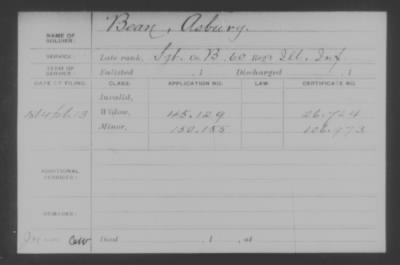 NAME OF SOLDIER: Bean, Asbury.
SERVICE: Late rank, Sgt. Co. B, 60 Reg't Ill. Inf
TERM OF SERVICE: Enlisted , 1 Discharged , 1
DATE OF FILING. CLASS. APPLICATION NO. LAW. CERTIFICATE NO.
Invalid,
Widow, 45.129 26.724
Minor, 150.185 106.973
ADDITIONAL SERVICES:
REMARKS:
Died , 1 , at